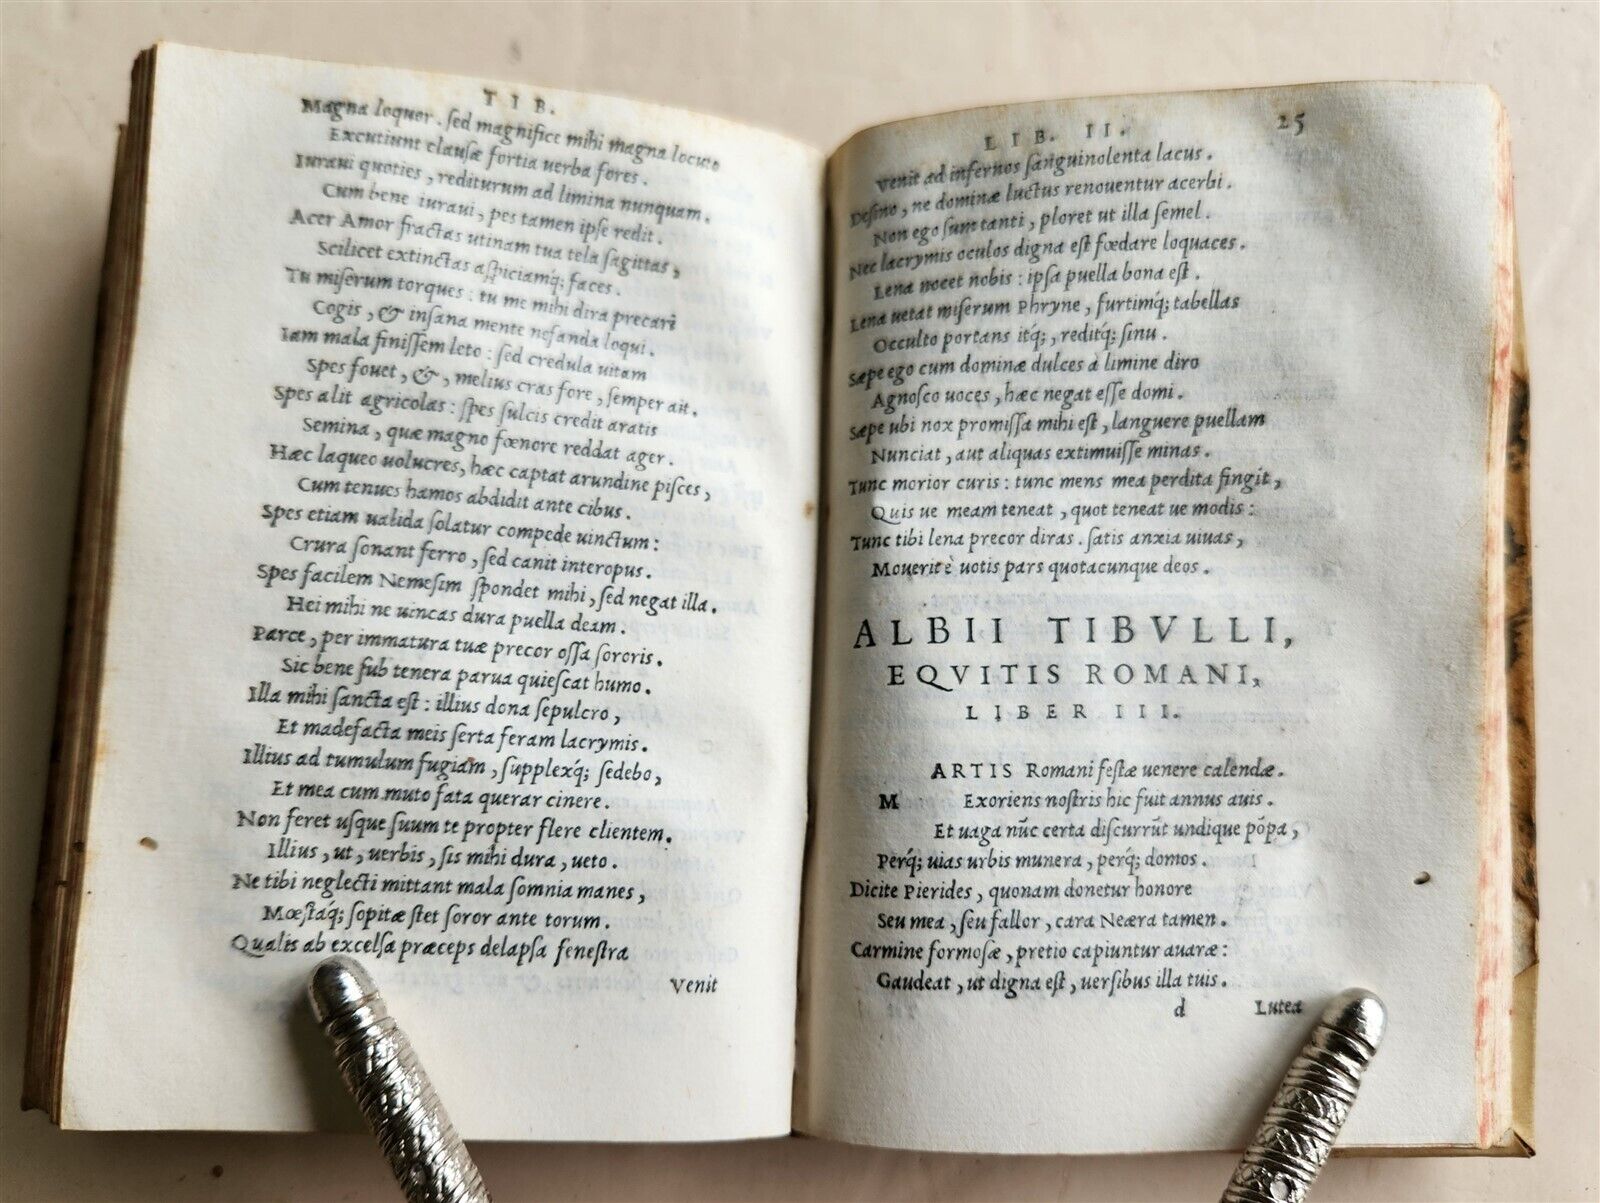 TIB.
Magna loquor. sed magnifice mihi magna locuto
Excutiunt clausæ fortia uerba fores.
Iuraui quoties, rediturum ad limina nunquam.
Cum bene iuraui, pes tamen ipse redit.
Acer Amor fractas utinam tua tela sagittas,
Scilicet extinctas aspiciamq́; faces.
Tu miserum torques: tu me mihi dira precari
Cogis, & insana mente nefanda loqui.
Iam mala finissem leto: sed credula uitam
Spes fouet, &, melius cras fore, semper ait.
Spes alit agricolas: spes sulcis credit aratis
Semina, quæ magno fœnore reddat ager.
Hæc laqueo uolucres, hæc captat arundine pisces,
Cum tenues hamos abdidit ante cibus.
Spes etiam ualida solatur compede uinctum:
Crura sonant ferro, sed canit interopus.
Spes facilem Nemesim spondet mihi, sed negat illa.
Hei mihi ne uincas dura puella deam.
Parce, per immatura tuæ precor ossa sororis.
Sic bene sub tenera parua quiescat humo.
Illa mihi sancta est: illius dona sepulcro,
Et madefacta meis serta feram lacrymis.
Illius ad tumulum fugiam, supplexq́; sedebo,
Et mea cum muto fata querar cinere.
Non feret usque suum te propter flere clientem.
Illius, ut, uerbis, sis mihi dura, ueto.
Ne tibi neglecti mittant mala somnia manes,
Mœstaq́; sopitæ stet soror ante torum.
Qualis ab excelsa præceps delapsa fenestra
Venit
LIB. II. 25
Venit ad infernos sanguinolenta lacus.
Desino, ne dominæ luctus renouentur acerbi.
Non ego sum tanti, ploret ut illa semel.
Nec lacrymis oculos digna est fœdare loquaces.
Lena nocet nobis: ipsa puella bona est.
Lena uetat miserum Phryne, furtimq́; tabellas
Occulto portans itq́;, reditq́; sinu.
Sæpe ego cum dominæ dulces à limine diro
Agnosco uoces, hæc negat esse domi.
Sæpe ubi nox promissa mihi est, languere puellam
Nunciat, aut aliquas extimuisse minas.
Tunc morior curis: tunc mens mea perdita fingit,
Quis ue meam teneat, quot teneat ue modis:
Tunc tibi lena precor diras. satis anxia uiuas,
Mouerit è uotis pars quotacunque deos.
ALBII TIBVLLI,
EQVITIS ROMANI,
LIBER III.
M
ARTIS Romani festæ uenere calendæ.
Exoriens nostris hic fuit annus auis.
Et uaga nũc certa discurrũt undique põpa,
Perq́; uias urbis munera, perq́; domos.
Dicite Pierides, quonam donetur honore
Seu mea, seu fallor, cara Neæra tamen.
Carmine formosæ, pretio capiuntur auaræ:
Gaudeat, ut digna est, uersibus illa tuis.
d Lutea